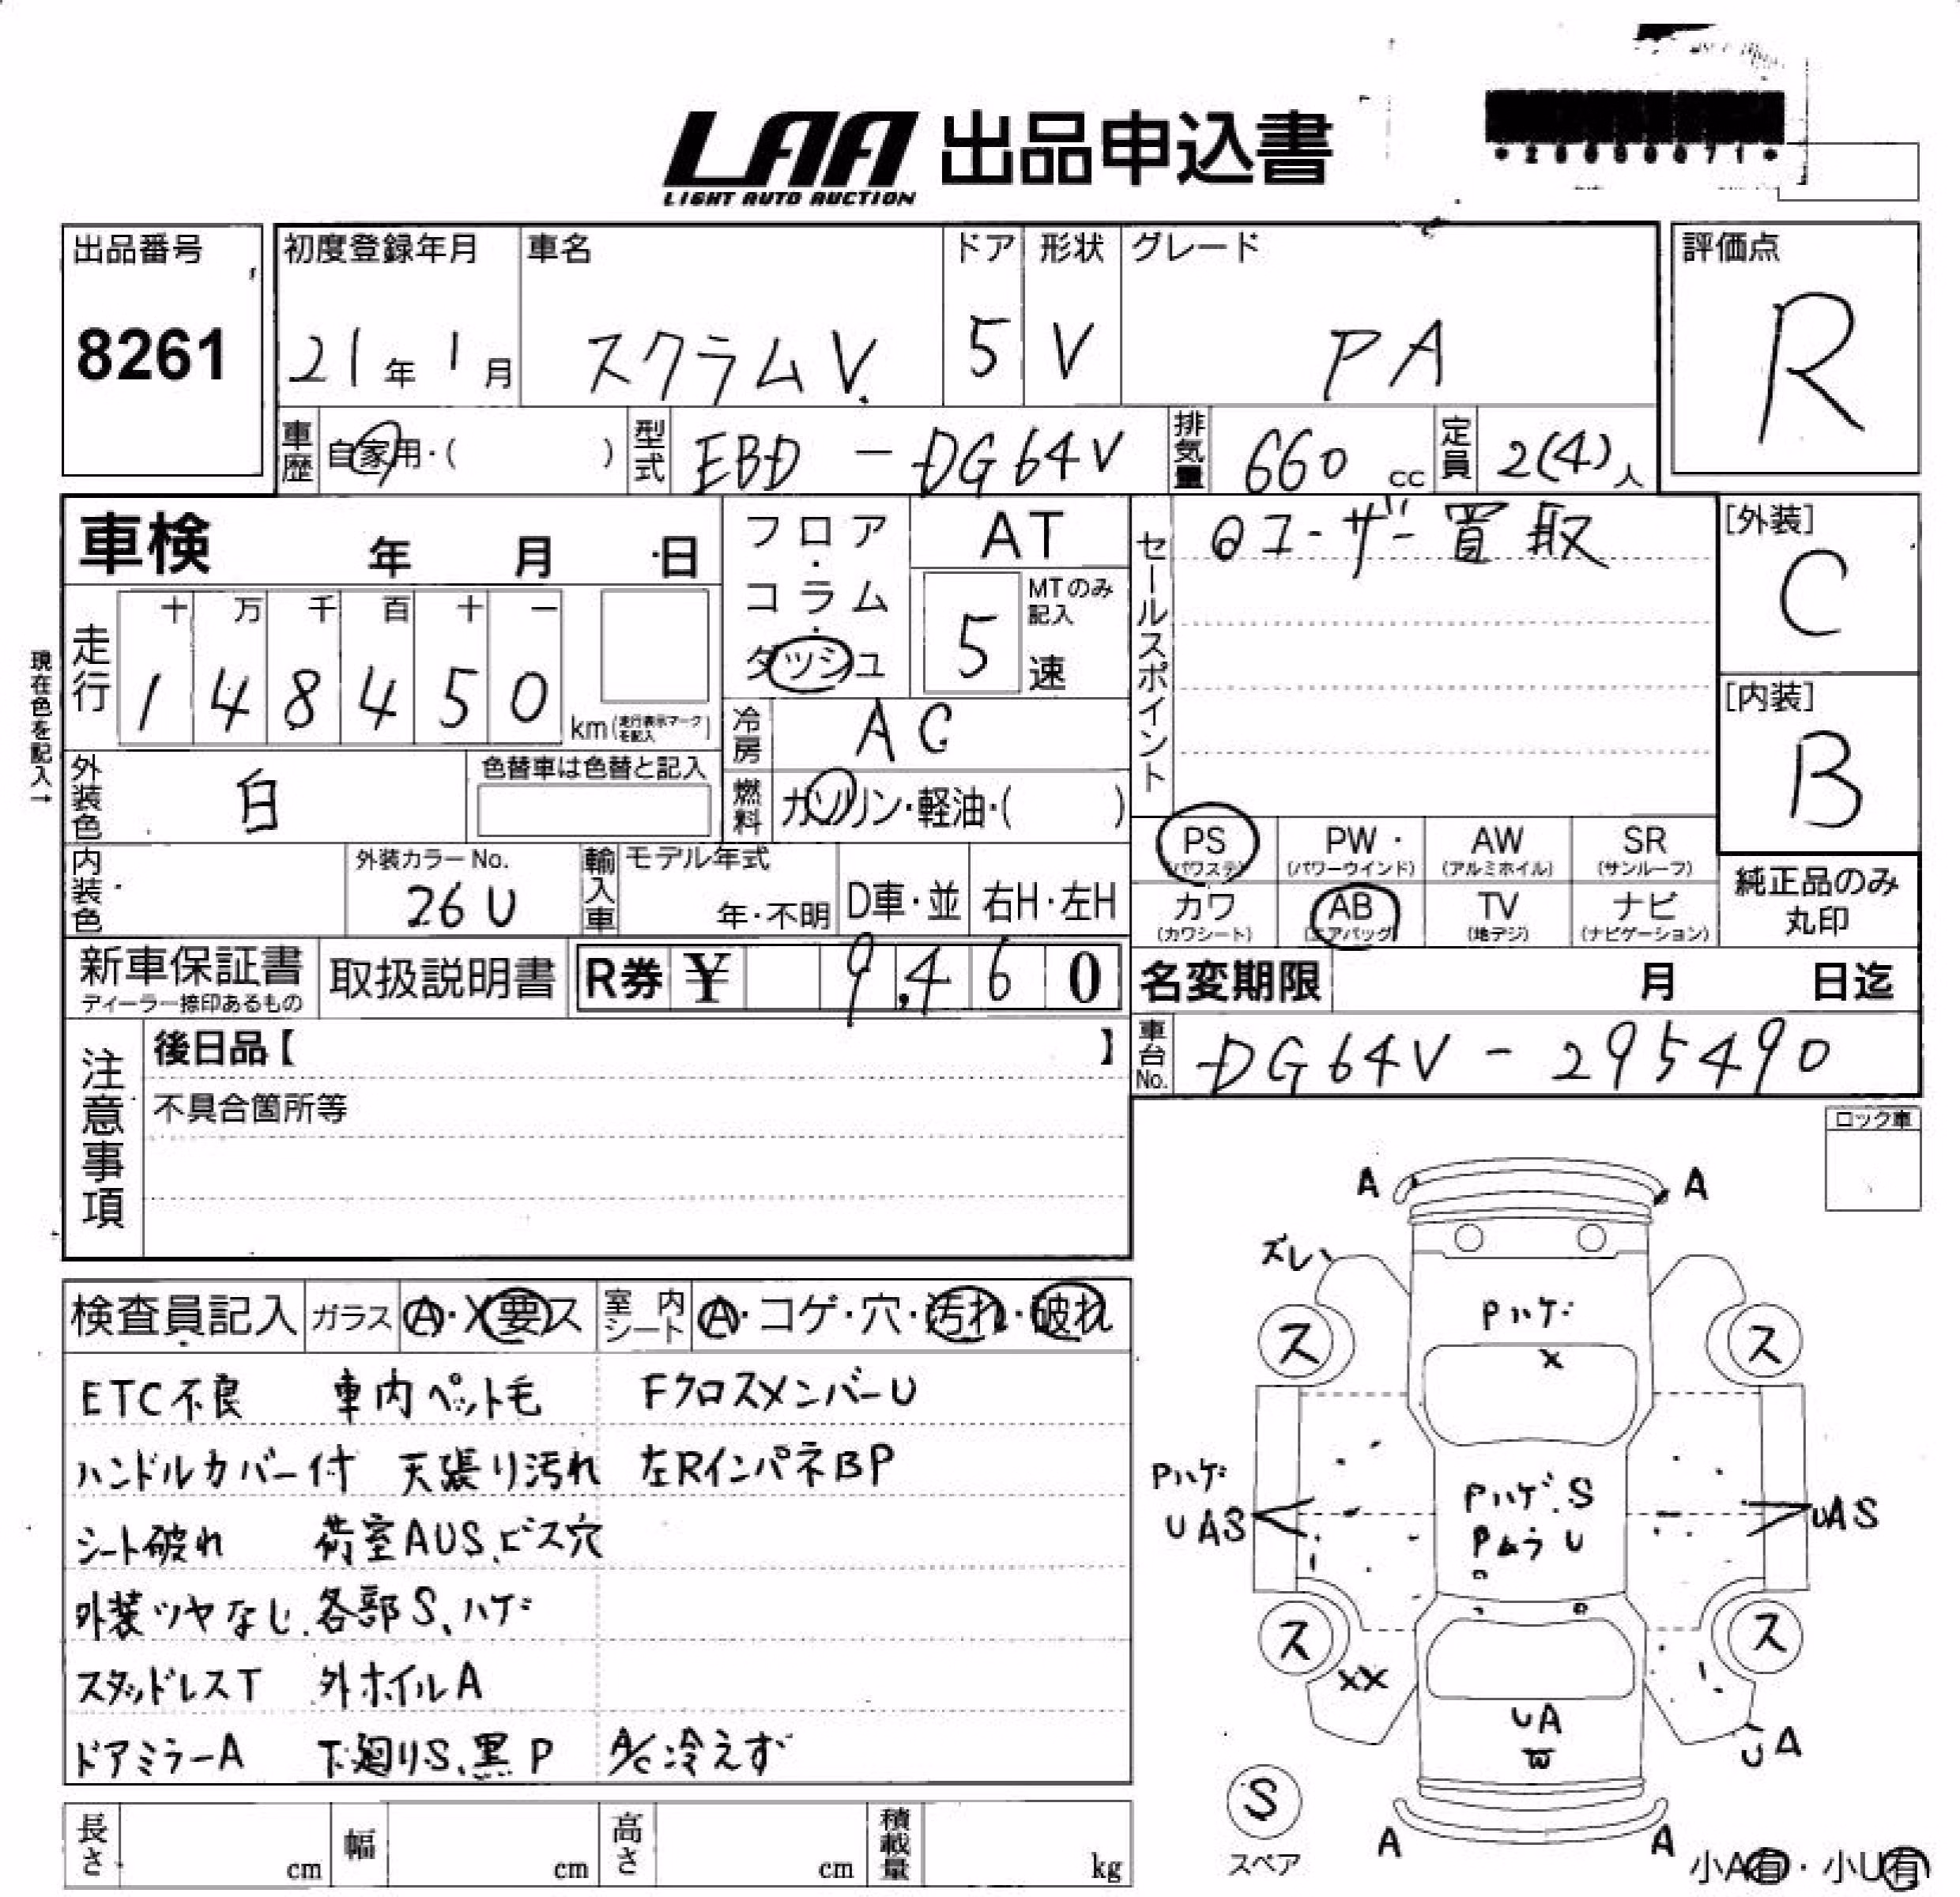 LAA 出品申込書
LIGHT AUTO AUCTION
出品番号
8261
初度登録年月
21年 1月
車名
スクラムV
ドア
5
形状
V
グレード
PA
評価点
R
車歴 自家用・( )
型式 EBD - DG64V
排気量 660 cc
定員 2(4)人
車検 年 月 日
フロア・コラム・ダッシュ
AT
MTのみ記入
5 速
セールスポイント
ユーザー買取
[外装]
C
[内装]
B
現在色を記入→
走行
十 万 千 百 十 一
1 4 8 4 5 0
km(走行表示マークを記入)
冷房 AC
燃料 ガソリン・軽油・( )
外装色 白
色替車は色替と記入
内装色
外装カラーNo.
26U
輸入車
モデル年式
年・不明
D車・並
右H・左H
PS (パワステ)
PW (パワーウインド)
AW (アルミホイル)
SR (サンルーフ)
カワ (カワシート)
AB (エアバッグ)
TV (地デジ)
ナビ (ナビゲーション)
純正品のみ丸印
新車保証書
ディーラー捺印あるもの
取扱説明書
R券 ¥ 9,460
名変期限 月 日迄
車台No. DG64V - 295490
注意事項
後日品【 】
不具合箇所等
ロック車
検査員記入
ガラス A・X要ス
室内シート A・コゲ・穴・汚れ・破れ
ETC不良 車内ペット毛 FクロスメンバーU
ハンドルカバー付 天張り汚れ 左RインパネBP
シート破れ 荷室AUS、ビス穴
外装ツヤなし、各部S、ハゲ
スタッドレスT 外ホイルA
ドアミラーA 下廻りS、黒P A/C冷えず
A A
ズレ
Pハゲ
ス ス
X
Pハゲ
UAS
Pハゲ.S
PムラU
UAS
ス ス
XX
UA
W
UA
S
スペア
A A
小A有・小U有
長さ cm
幅 cm
高さ cm
積載量 kg